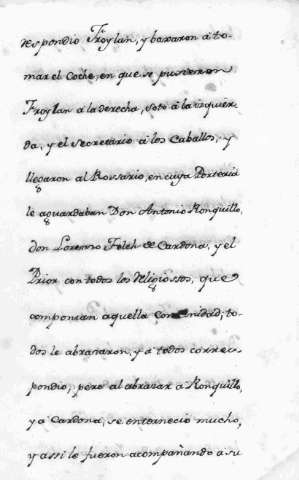 respondio Froylan, y baxaron á to-
mar el Coche, en que se pusieron
Froylan a la derecha, Soto á la izquier-
da, y el Secretario á los Caballos, y
llegaron al Rossario, en cuya Porteria
le aguardaban Don Antonio Ronquillo,
don Lorenzo Folch de Cardona, y el
Prior con todos los Religiossos, que
componian aquella Comunidad; to-
dos le abrazaron, y á todos corres-
pondio, pero al abrazar a Ronquillo,
y a Cardona, se enternecio mucho,
y assi le fueron acompañando a su